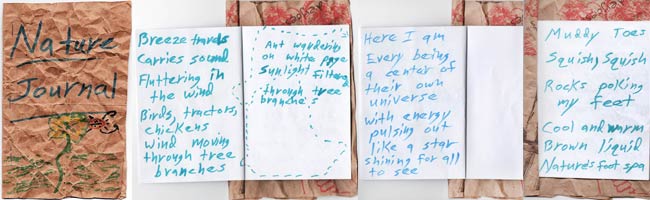 Nature
Journal
Breeze travels
Carries sound
Fluttering in
the wind
Birds, tractors,
chickens
wind moving
through tree
branches
Ant wandering
on white page
Sunlight filtered
through tree
branches
Here I am
Every being
a center of
their own
universe
with energy
pulsing out
like a star
shining for all
to see
Muddy Toes
Squishy Squish
Rocks poking
my feet
Cool and warm
Brown liquid
Natures foot spa